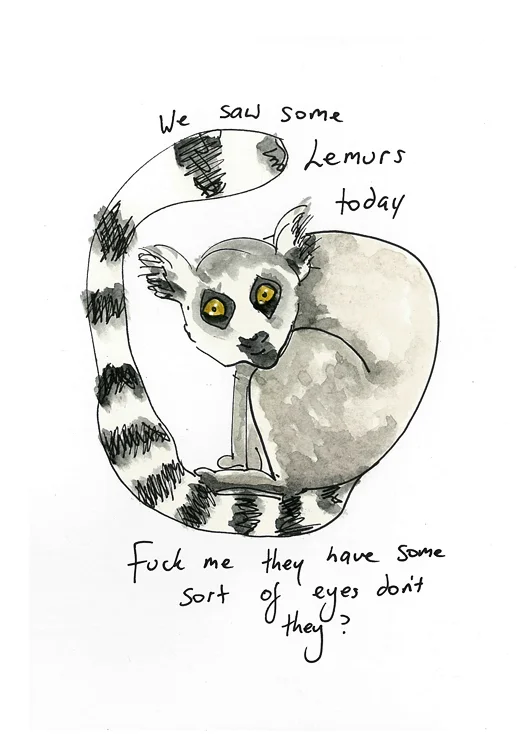 We saw some
Lemurs
today
Fuck me they have some
sort of eyes don't
they?